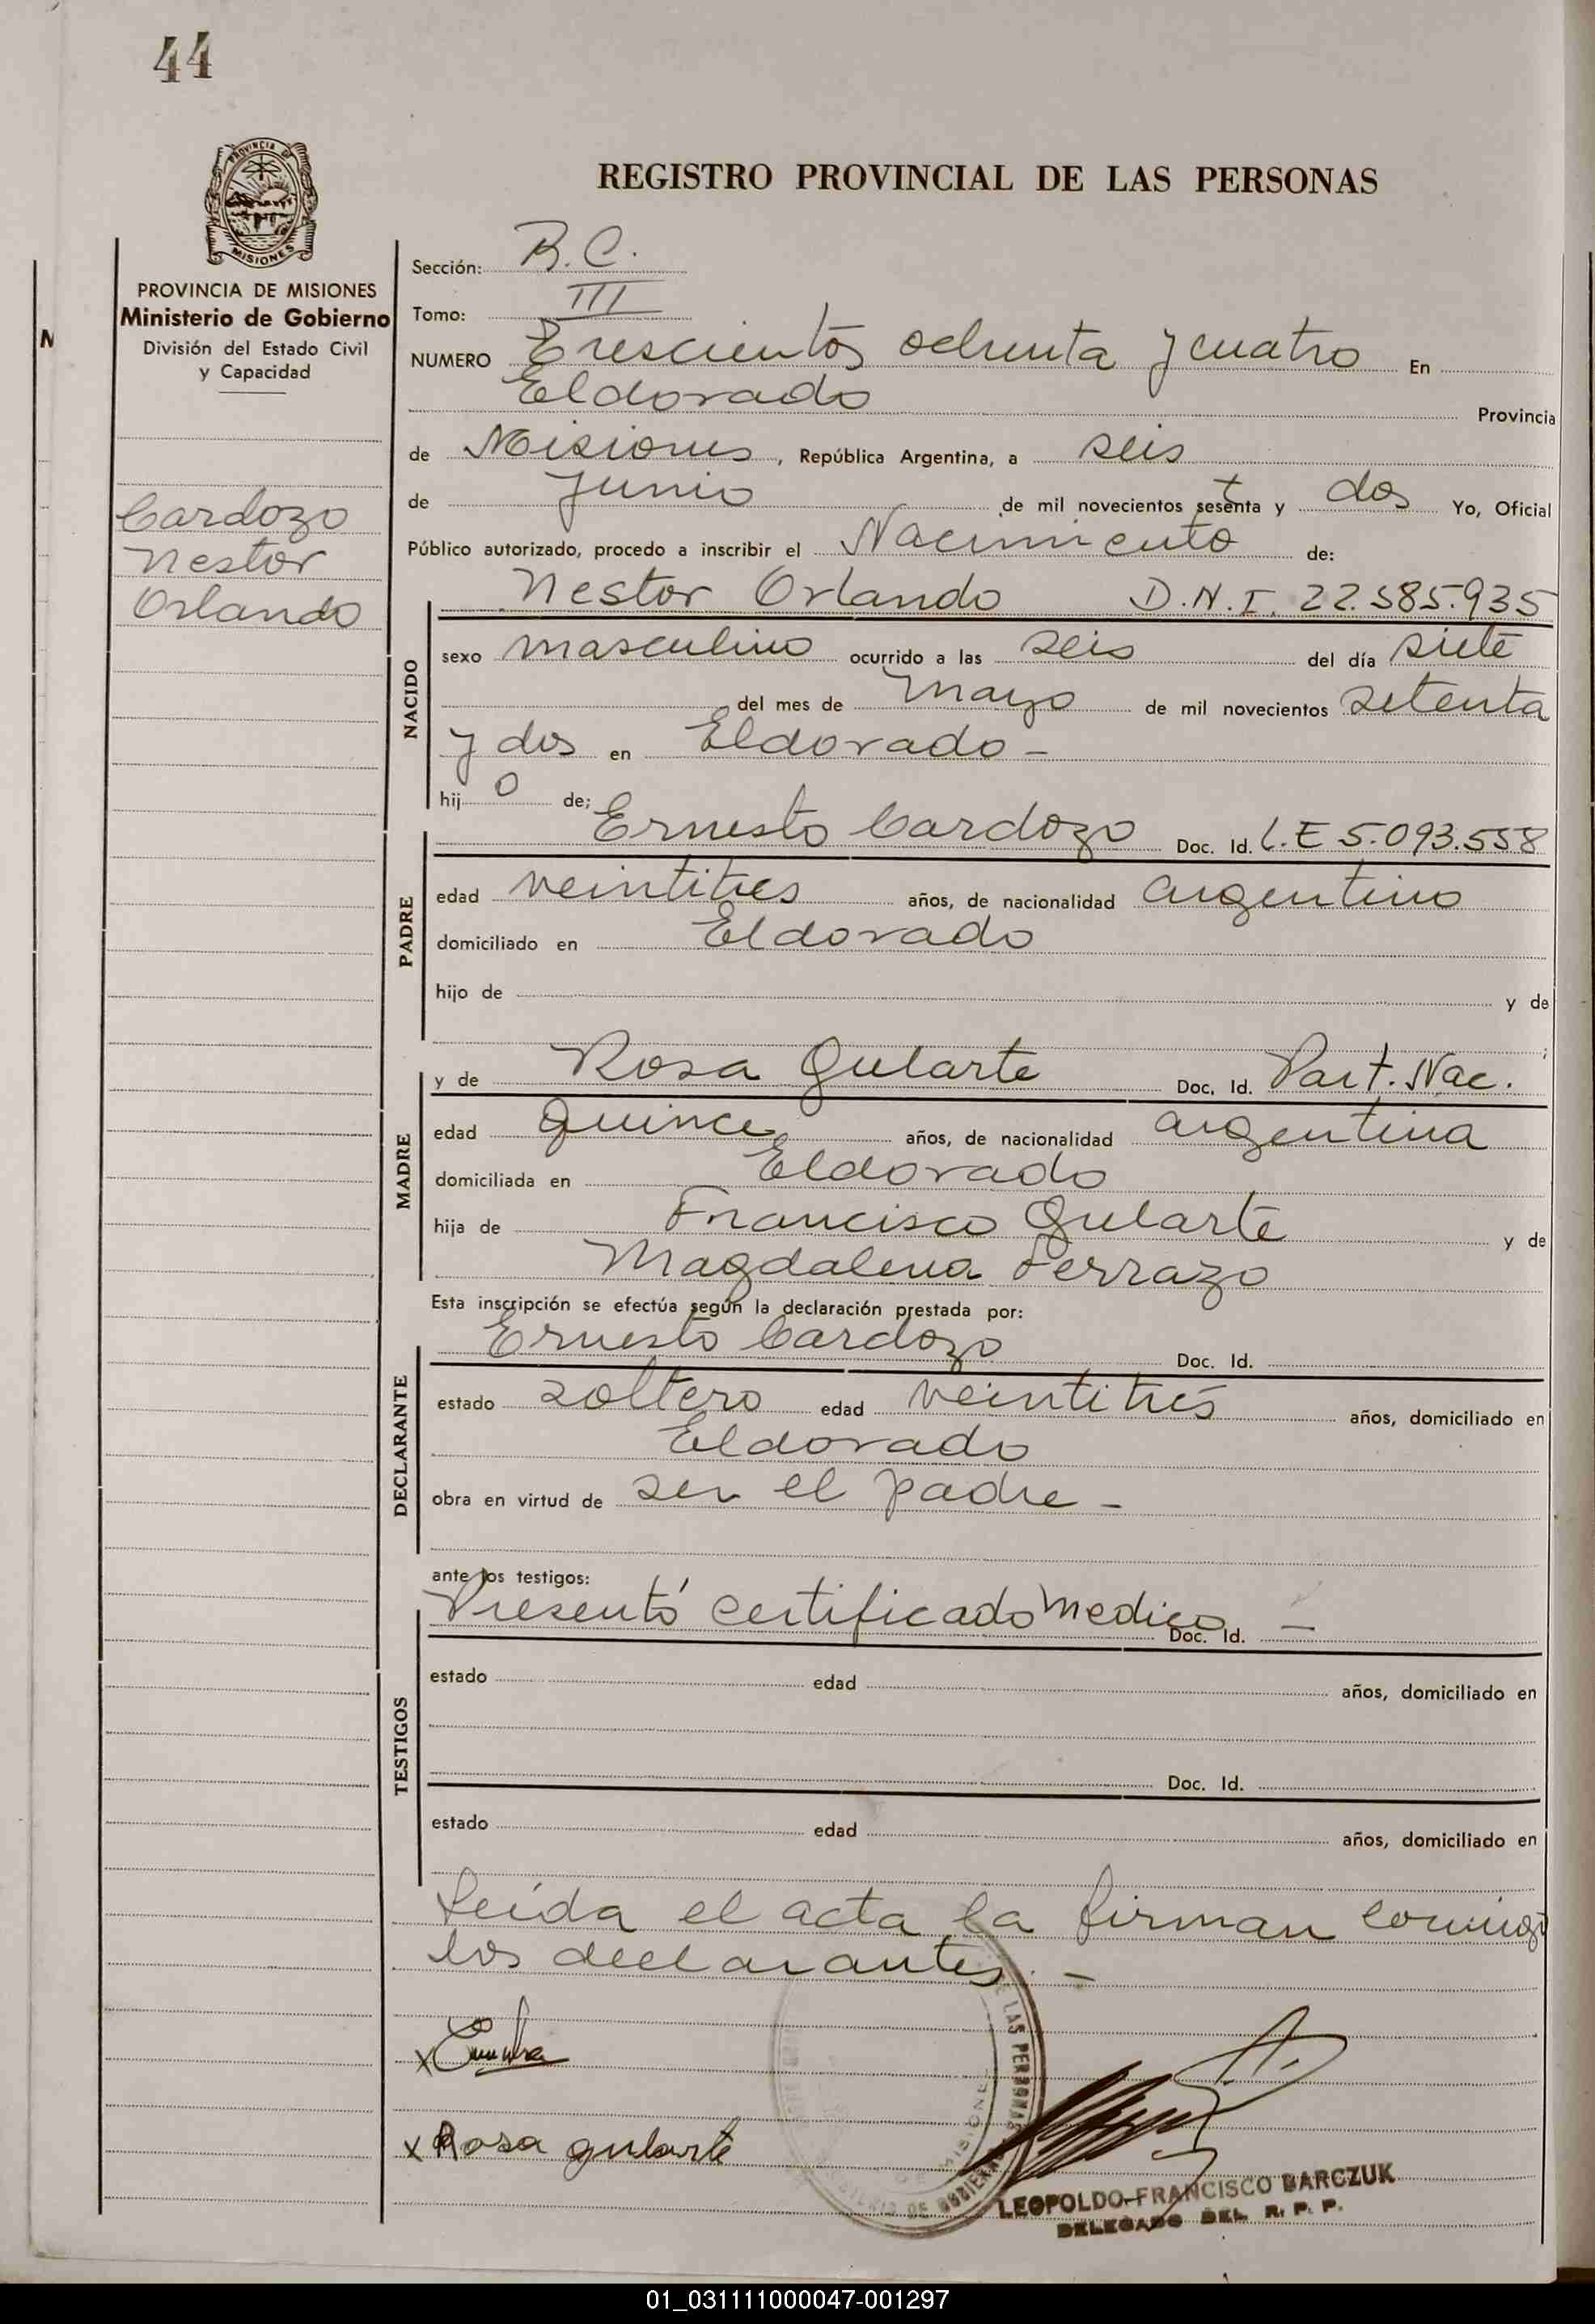 44
REGISTRO PROVINCIAL DE LAS PERSONAS
PROVINCIA DE
MISIONES
PROVINCIA DE MISIONES
Ministerio de Gobierno
División del Estado Civil
y Capacidad
Cardozo
Nestor
Orlando
Sección: R.C.
Tomo: III
NUMERO Trescientos ochenta y cuatro En
Eldorado Provincia
de Misiones, República Argentina, a seis
de Junio de mil novecientos sesenta y dos Yo, Oficial
Público autorizado, procedo a inscribir el Nacimiento de:
NACIDO
Nestor Orlando D.N.I. 22.585.935
sexo masculino ocurrido a las seis del día siete
del mes de mayo de mil novecientos setenta
y dos en Eldorado -
hij o de;
PADRE
Ernesto Cardozo Doc. Id. L.E 5.093.558
edad veintitres años, de nacionalidad argentino
domiciliado en Eldorado
hijo de y de
MADRE
y de Rosa Gularte Doc. Id. Part. Nac.
edad quince años, de nacionalidad argentina
domiciliada en Eldorado
hija de Francisco Gularte y de
Magdalena Ferrazo
Esta inscripción se efectúa según la declaración prestada por:
DECLARANTE
Ernesto Cardozo Doc. Id.
estado soltero edad veintitrés años, domiciliado en
Eldorado
obra en virtud de ser el padre -
ante los testigos:
TESTIGOS
Presentó certificado medico Doc. Id. -
estado edad años, domiciliado en
Doc. Id.
estado edad años, domiciliado en
Leída el acta la firman conmigo
los declarantes. -
x
x Rosa gularte
LAS PERSONAS
LEOPOLDO FRANCISCO BARCZUK
DELEGADO DEL R. P. P.
01_031111000047-001297